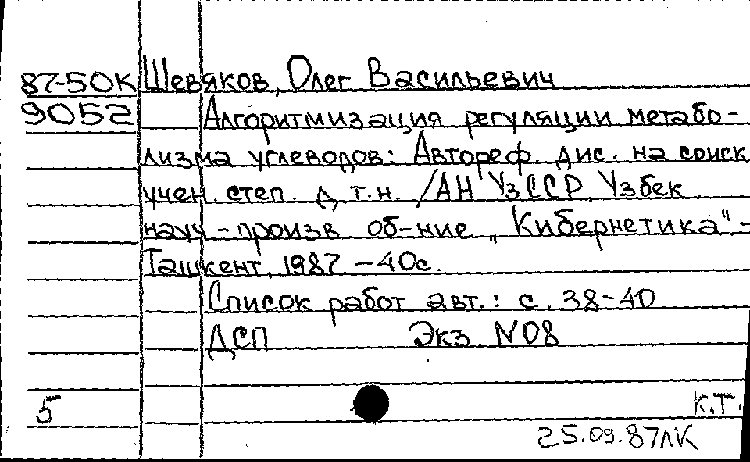 87-50К Шевяков, Олег Васильевич
9052 Алгоритмизация регуляции метабо-
лизма углеводов: Автореф. дис. на соиск
учен. степ. д.т.н. /АН УзССР, Узбек.
науч-произв об-ние „Кибернетика"-
Ташкент, 1987 -40с.
Список работ авт.: с. 38-40
ДСП Экз N08
5 к.т.
25.09.87лк